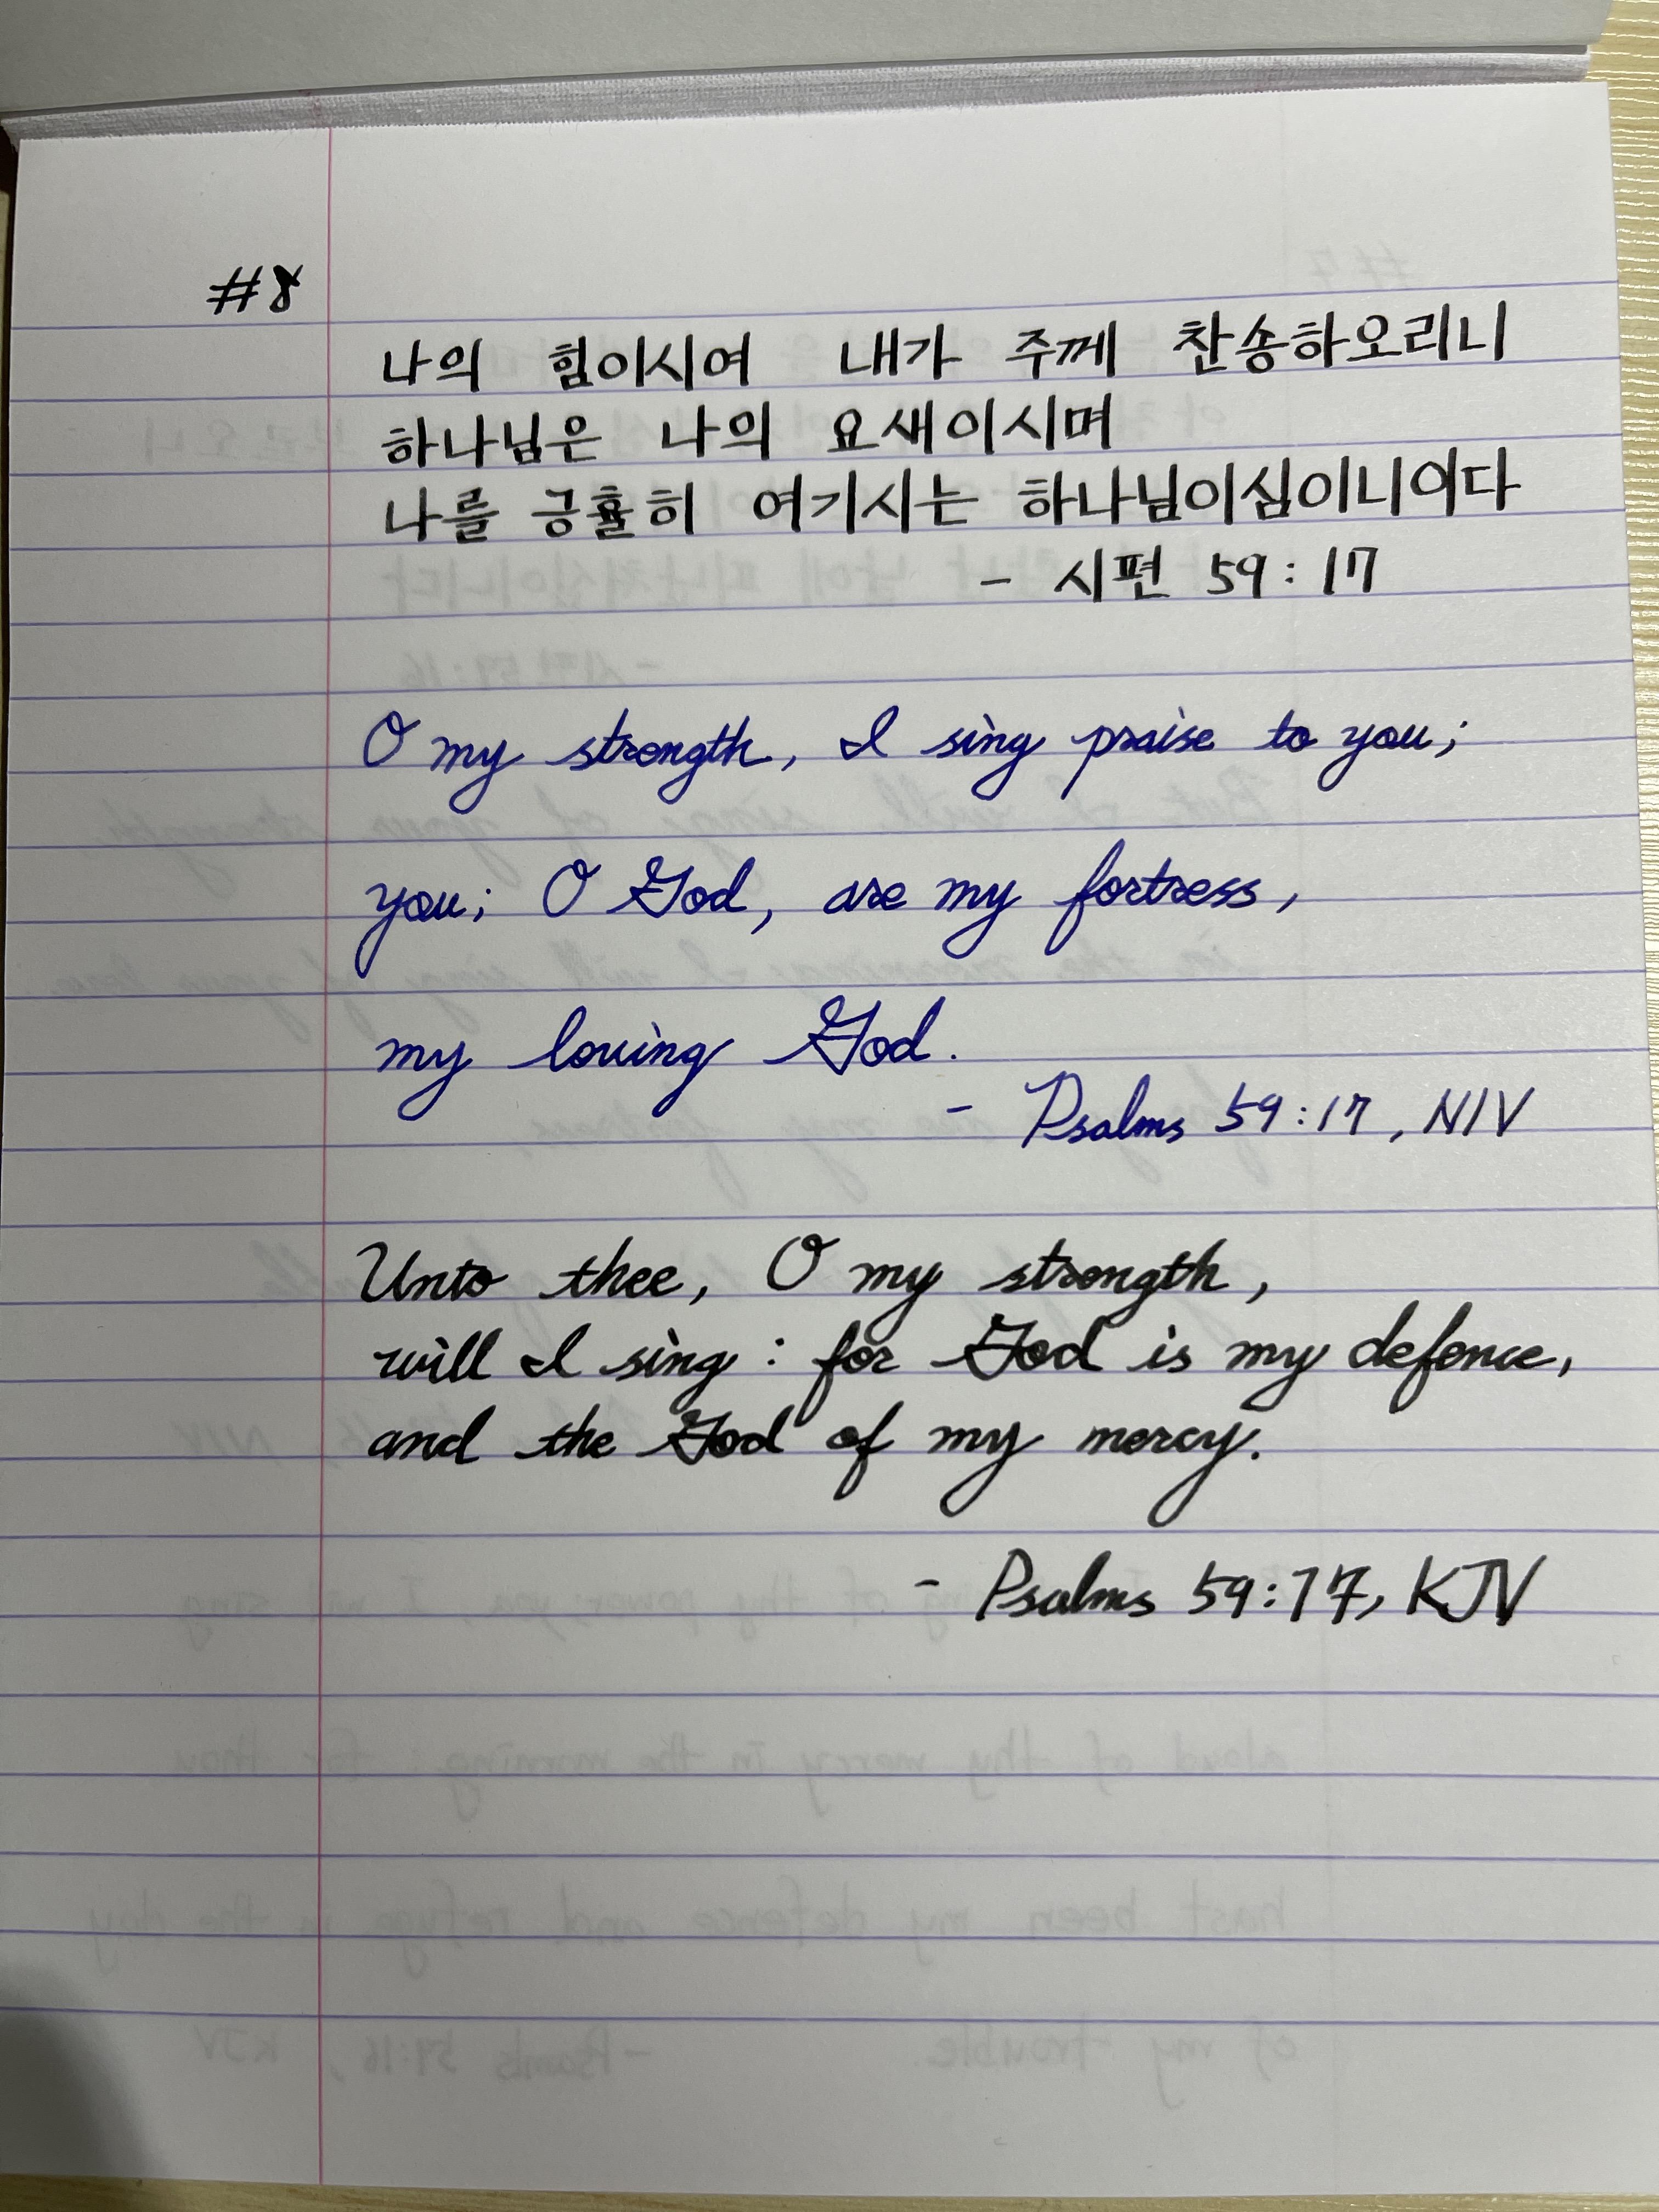 #8
나의 힘이시여 내가 주께 찬송하오리니
하나님은 나의 요새이시며
나를 긍휼히 여기시는 하나님이심이니이다
- 시편 59:17
O my strength, I sing praise to you;
you; O God, are my fortress,
my loving God.
- Psalms 59:17, NIV
Unto thee, O my strength,
will I sing: for God is my defence,
and the God of my mercy.
- Psalms 59:17, KJV